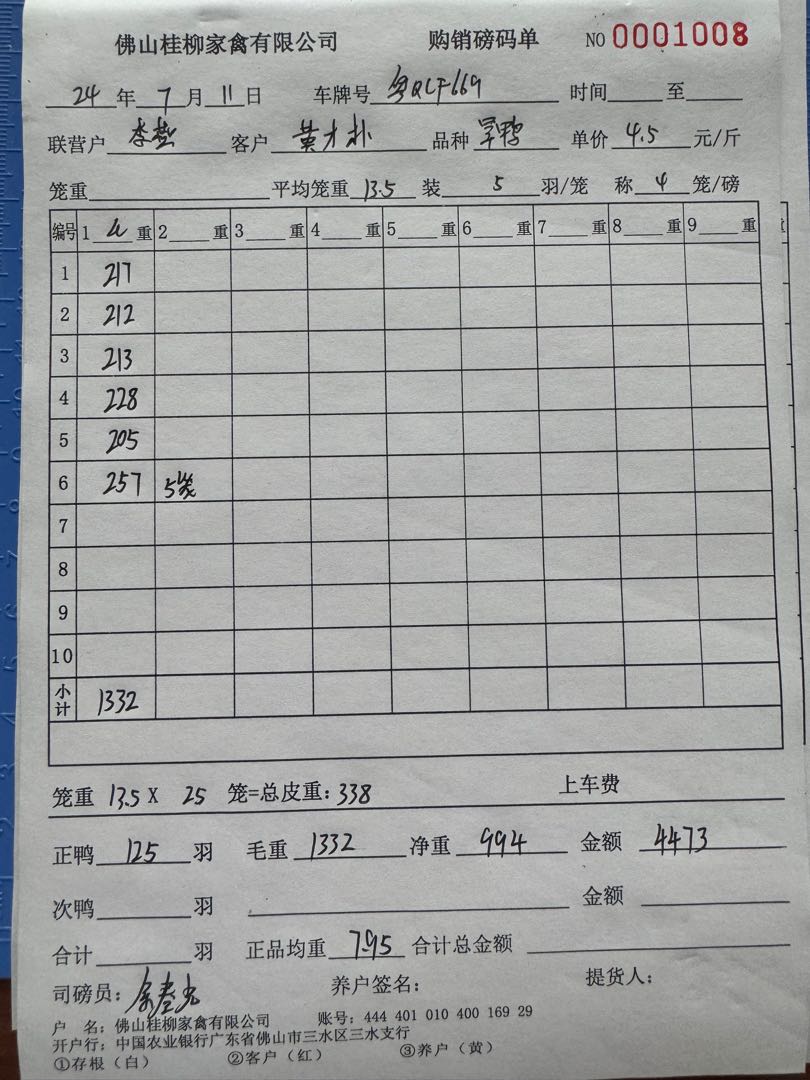 佛山桂柳家禽有限公司 购销磅码单 NO 0001008
24 年 7 月 11 日 车牌号 粤QCF669 时间 至
联营户 李 客户 黄才朴 品种 旱鸭 单价 4.5 元/斤
笼重 平均笼重 13.5 装 5 羽/笼 称 4 笼/磅
编号 1 重 2 重 3 重 4 重 5 重 6 重 7 重 8 重 9 重
1 217
2 212
3 213
4 228
5 205
6 257 5笼
7
8
9
10
小计 1332
笼重 13.5 X 25 笼=总皮重: 338 上车费
正鸭 125 羽 毛重 1332 净重 994 金额 4473
次鸭 羽 金额
合计 羽 正品均重 7.95 合计总金额
司磅员: 养户签名: 提货人:
户 名: 佛山桂柳家禽有限公司 账号: 444 401 010 400 169 29
开户行: 中国农业银行广东省佛山市三水区三水支行
①存根（白） ②客户（红） ③养户（黄）